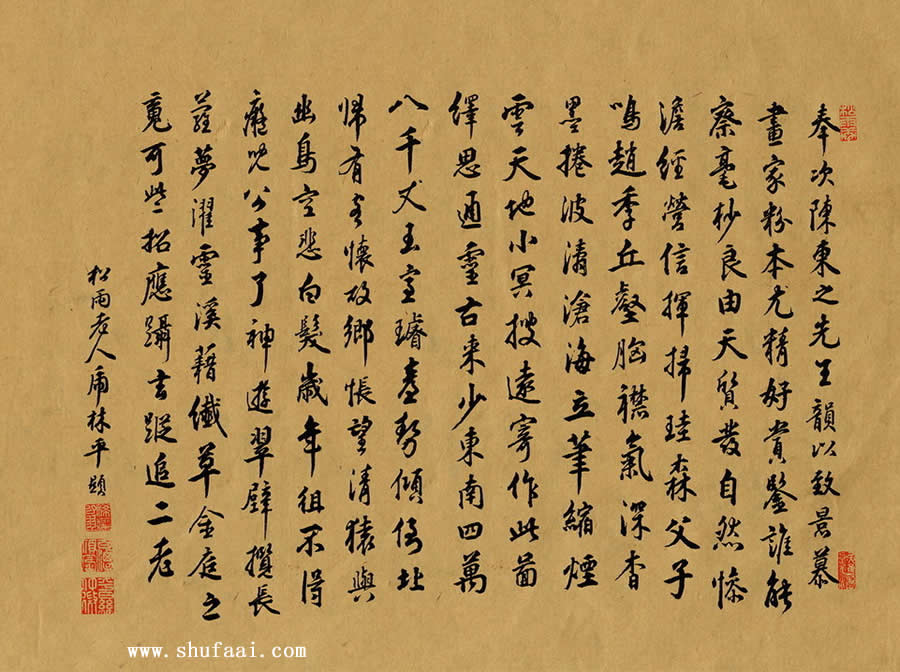 奉次陳東之先生韻以致景慕
畫家粉本尤精好賞鑒誰能
察毫杪良由天質發自然慘
澹經營信揮掃珪森父子
鳴趙季丘壑胸襟氣深杳
墨捲波濤滄海立筆縮煙
雲天地小冥搜遠寄作此啚
繹思通靈古來少東南四萬
八千丈玉室璿臺勢傾倚北
歸有客懷故鄉悵望清猿與
幽鳥空悲白髮歲年徂不得
癡兒公事了神遊翠壁攬長
蘿夢濯靈溪藉纖草金庭之
竟可些招應躡玄蹤追二老
松雨老人虎林平顯
www.shufaai.com